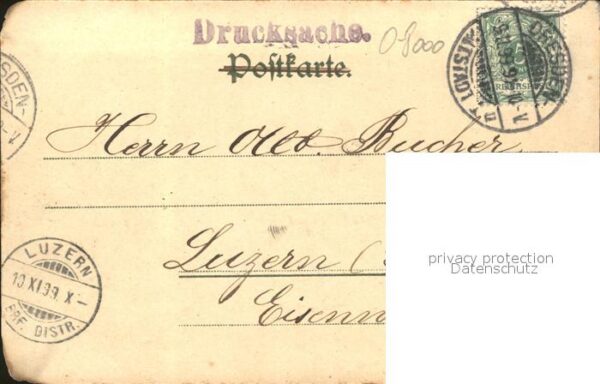 Drucksache.
09000
Postkarte.
DRESDEN-
ALTSTADT
Herrn Alb. Bucher
Luzern (
Eisenm
LUZERN
10 XI 99. X
BRF. DISTR.
privacy protection
Datenschutz